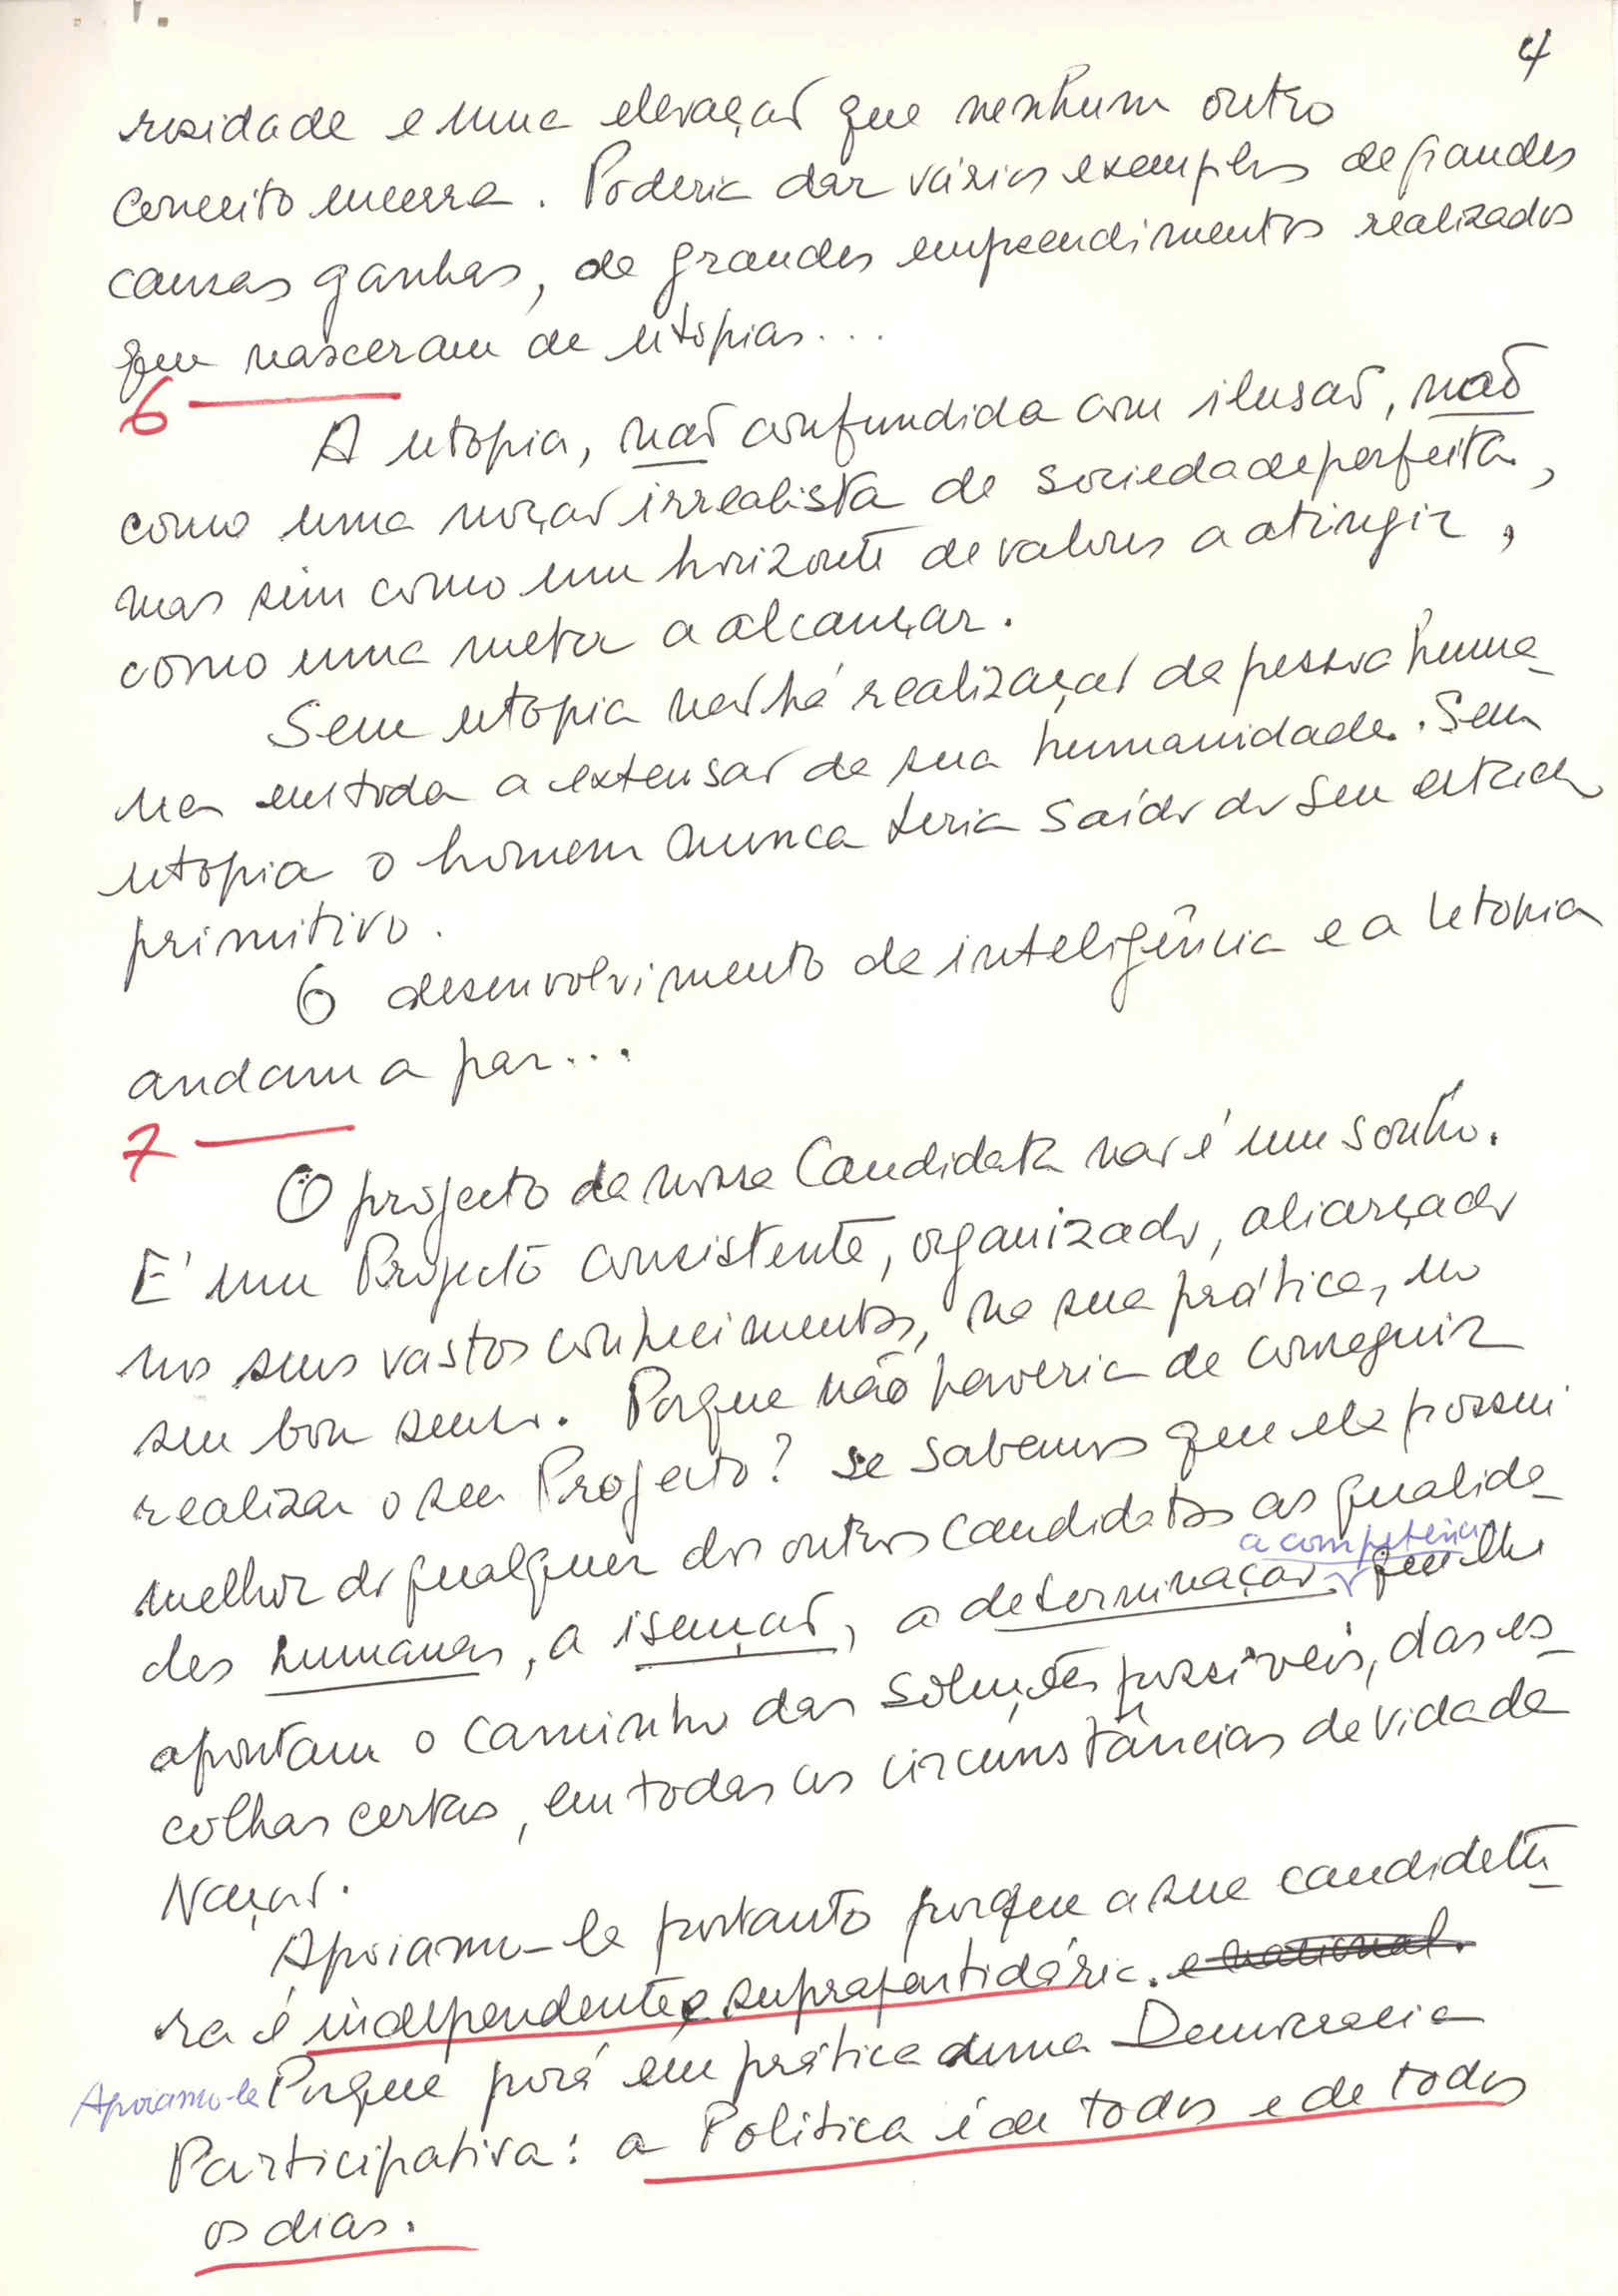 4
rosidade e uma elevação que nenhum outro
conceito encerra. Poderia dar vários exemplos de grandes
causas ganhas, de grandes empreendimentos realizados
que nasceram de utopias...
6
A utopia, não confundida com ilusão, não
como uma noção irrealista de sociedade perfeita,
mas sim como um horizonte de valores a atingir,
como uma meta a alcançar.
Sem utopia não há realização da pessoa huma-
na em toda a extensão da sua humanidade. Sem
utopia o homem nunca teria saído do seu estado
primitivo.
O desenvolvimento da inteligência e a utopia
andam a par...
7
O projecto da nossa Candidata não é um sonho.
É um Projecto consistente, organizado, aliarçado
nos seus vastos conhecimentos, na sua prática, no
seu bom senso. Porque não haveria de conseguir
realizar o seu Projecto? se sabemos que ela possui
melhor do qualquer dos outros candidatos as qualida-
des humanas, a isenção, a determinação, a competência que lhe
apontam o caminho das soluções possíveis, das es-
colhas certas, em todas as circunstâncias da vida da
Nação.
Apoiamo-la portanto porque a sua candidatu-
ra é independente e suprapartidária. e nacional.
Apoiamo-la Porque porá em prática uma Democracia
Participativa: a Política é de todos e de todos
os dias.